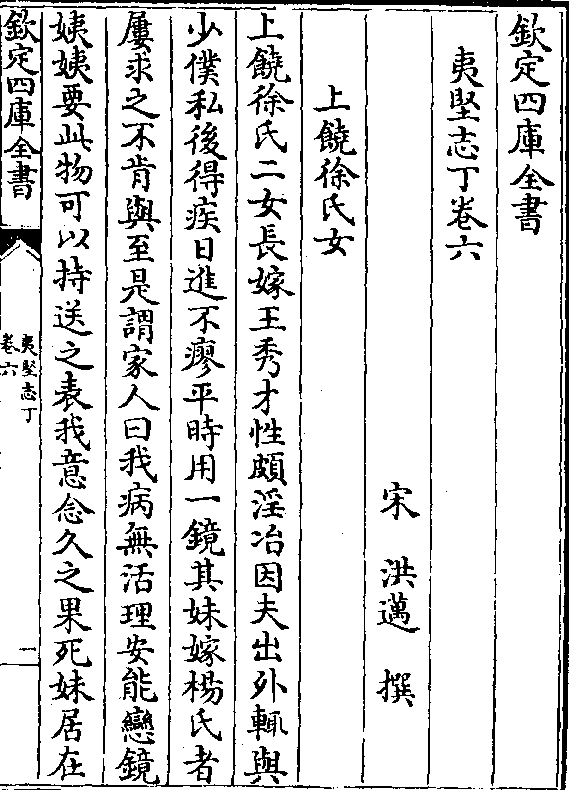 欽定四庫全書
夷堅志丁卷六
宋 洪邁 撰
上饒徐氏女
上饒徐氏二女長嫁王秀才性頗淫冶因夫出外輒與
少僕私後得疾日進不瘳平時用一鏡其妹嫁楊氏者
屢求之不肯與至是謂家人曰我病無活理安能戀鏡
姨姨要此物可以持送之表我意念久之果死妹居在
欽定四庫全書
夷堅志丁
卷六
二